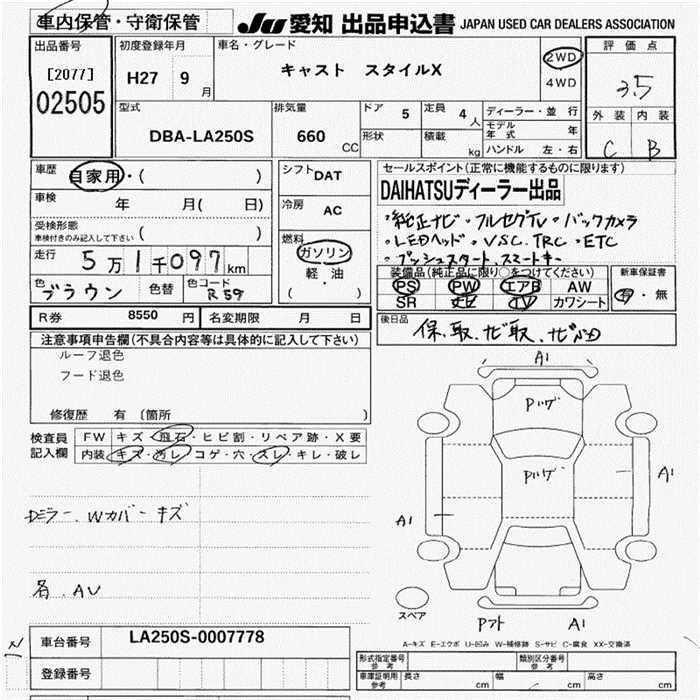 車内保管・守衛保管
JU 愛知 出品申込書 JAPAN USED CAR DEALERS ASSOCIATION
出品番号
[2077]
02505
初度登録年月
H27 9月
車名・グレード
キャスト スタイルX
2WD
4WD
評価点
3.5
外装 内装
C B
型式
DBA-LA250S
排気量
660 CC
ドア 5
定員 4人
形状
積載 kg
ディーラー・並行
モデル年式 年
ハンドル 左・右
車歴 自家用・( )
車検 年 月( 日)
受検形態
車検付きのみ記入して下さい ( )
走行 5万1千097km
色 ブラウン 色替 色コード R59
シフト DAT
冷房 AC
燃料
ガソリン
軽・油
( )
セールスポイント(正常に機能するものに限ります)
DAIHATSUディーラー出品
・純正ナビ・フルセグTV・バックカメラ
・LEDヘッド・VSC.TRC・ETC
・プッシュスタート.スマートキー
装備品(純正品に限り○をつけてください)
PS PW エアB AW
SR ナビ TV カワシート
新車保証書
有・無
R券 8550円 名変期限 月 日
後日品
保、取、ナビ取、
注意事項申告欄(不具合内容等は具体的に記入して下さい)
ルーフ退色
フード退色
修復歴 有 〔箇所 〕
検査員記入欄
FW キズ・飛石・ヒビ割・リペア跡・X要
内装 キズ・汚レ・コゲ・穴・スレ・キレ・破レ
Dミラー、Wカバー キズ
各、AU
A1
Pハゲ
Pハゲ
A1
A1
スペア
Pフト A1
A-キズ E-エクボ U-凹み W-補修跡 S-サビ C-腐食 XX-交換済
車台番号 LA250S-0007778
登録番号
形式指定番号 参考
類別区分番号 参考
車庫証明用 参考 長さ cm 幅 cm 高さ cm